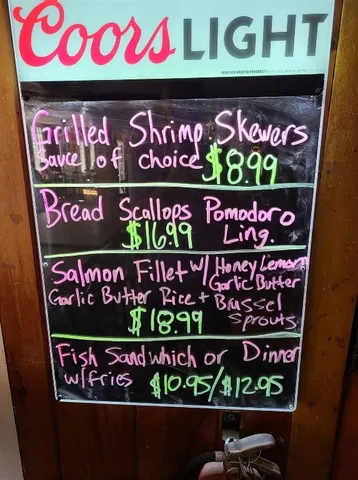 Coors LIGHT
Grilled Shrimp Skewers
Sauce of choice $8.99
Bread Scallops Pomodoro
$16.99 Ling.
Salmon Fillet w/ Honey Lemon
Garlic Butter
Garlic Butter Rice + Brussel
Sprouts
$18.99
Fish Sandwhich or Dinner
w/fries $10.95/$12.95